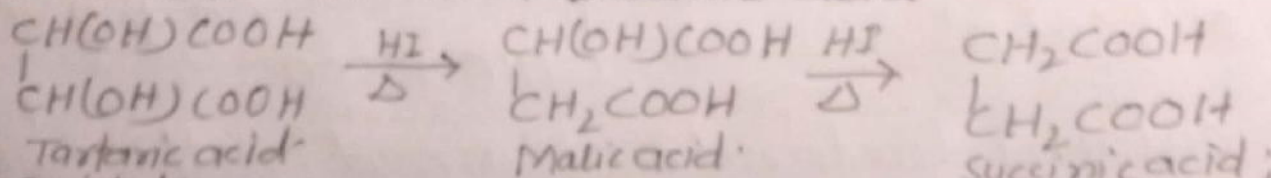 CH(OH)COOH HI CH(OH)COOH HI CH₂COOH
CH(OH)COOH Δ CH₂COOH Δ CH₂COOH
Tartaric acid Malic acid. Succinic acid